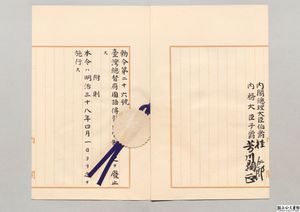 内閣總理大臣伯爵桂太郎
内務大臣子爵芳川顯正
勅令第二十六號
臺灣總督府國語傳
廢止
ス
附則
本令ハ明治三十八年四月一日ヨリ之ヲ
施行ス
国立公文書館